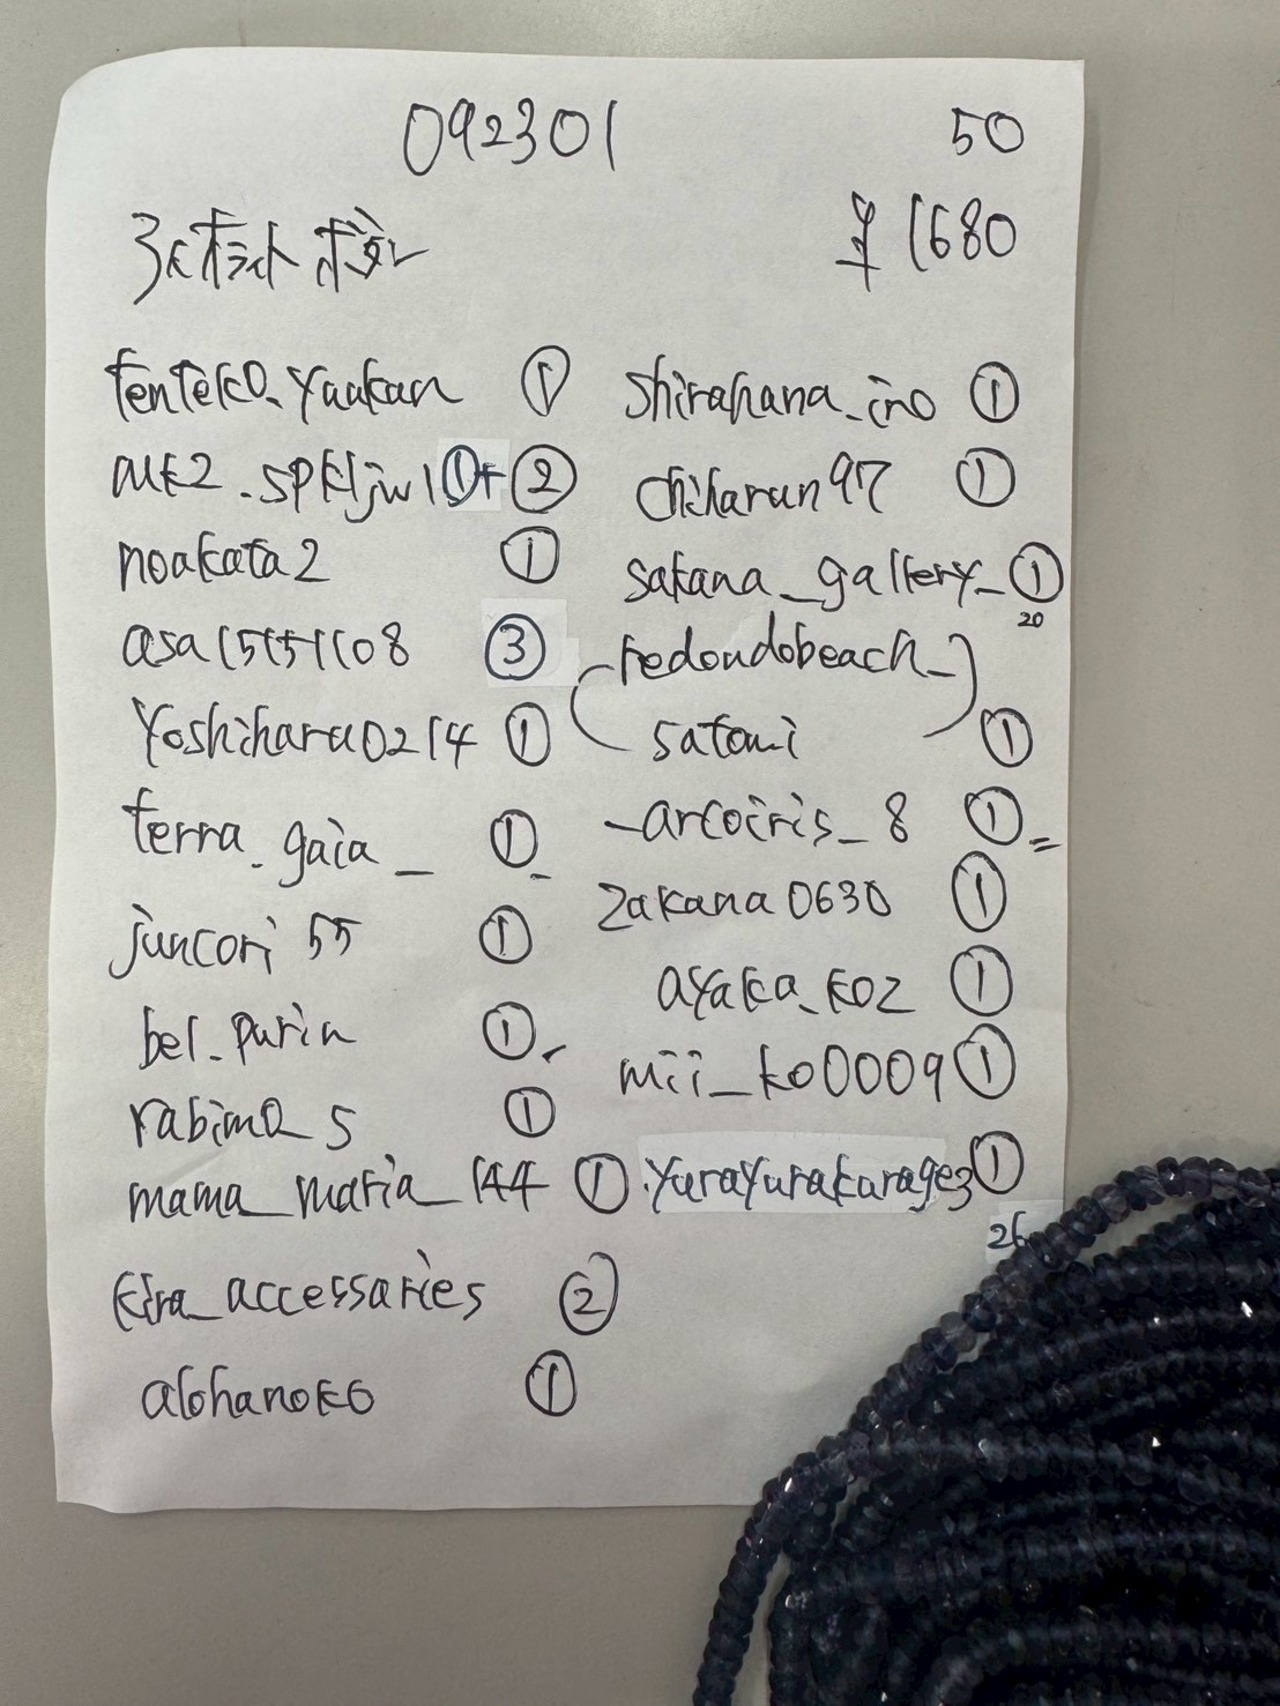 092301 50
¥1680
tenteko_yaukan ①
mk2.spkljwl ①+②
noakata2 ①
asa15151108 ③
yoshiharu0214 ①
terra_gaia_ ①
juncori55 ①
bel_purin ①
rabimo_s ①
mama_maria_144 ①
kira_accessaries ②
alohanoko ①
shirahana_ino ①
chiharun97 ①
sakana_gallery_ ①
20
(redondobeach_)
satomi ①
_arcoiris_8 ①
zakana0630 ①
ayaka_koz ①
mii_ko0009 ①
.yurayurakurage3 ①
26